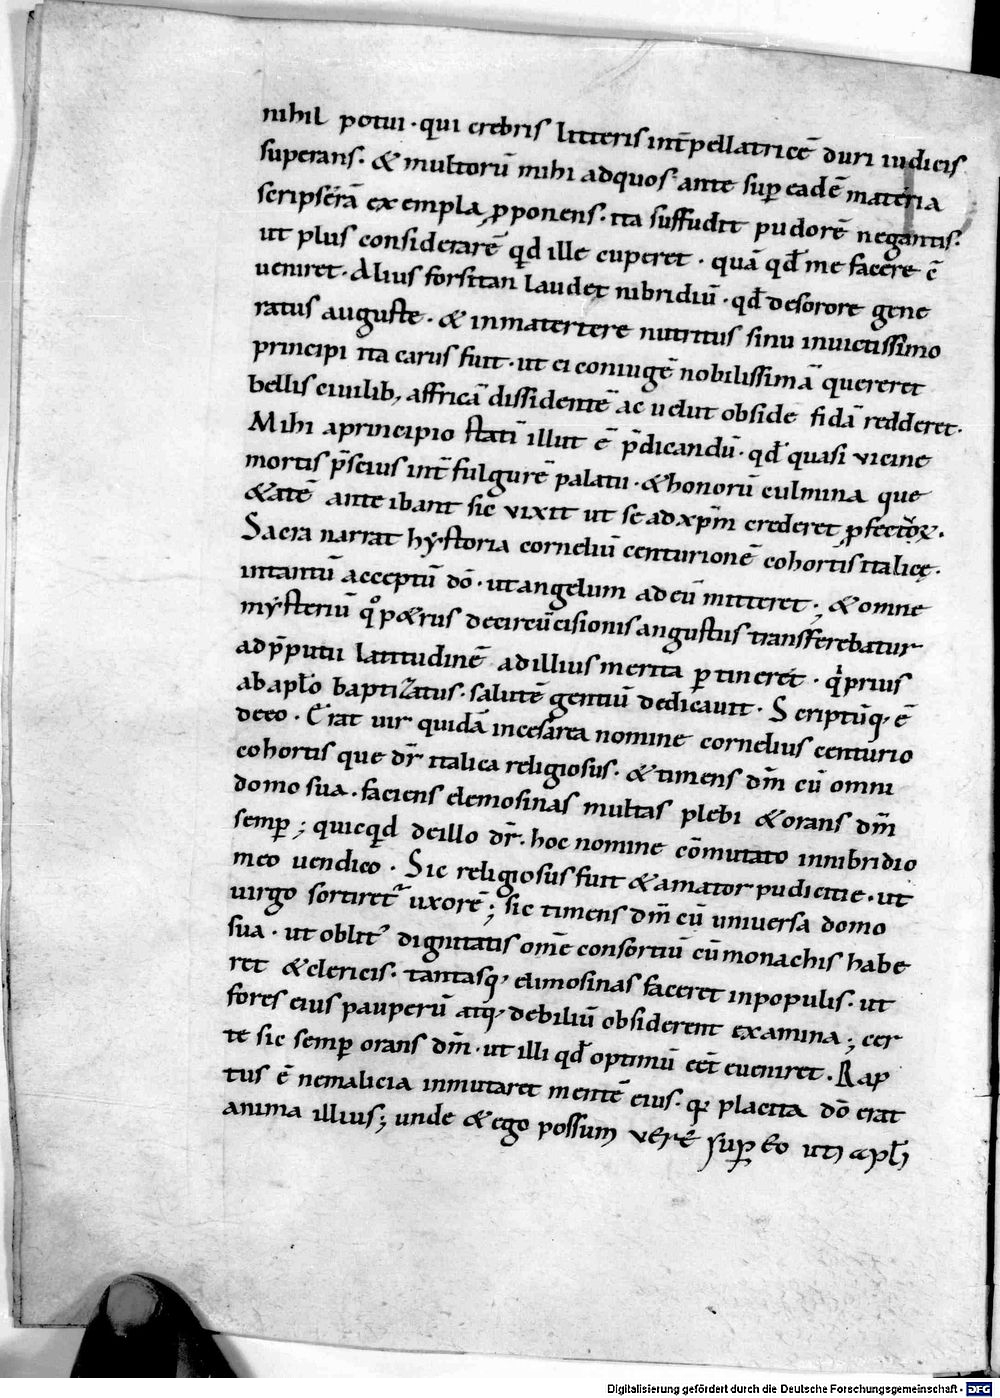 nihil potui · qui crebris litteris int̄pellatricē duri iudicis
superans · & multorū mihi adquos ante suꝑ eadē materia
scripserā exempla ꝓponens · ita suffudit pudorē negantis ·
ut plus considerarē qd ille cuperet · quā qd̄ me facere ē
ueniret · Alius forsitan laudet nibridiū · qd̄ desorore gene
ratus auguste · & inmatertere nutritus sinu inuictissimo
principi ita carus fuit · ut ei coniugē nobilissimā quereret
bellis ciuilib; affricā dissidentē ac uelut obside fidā redderet ·
Mihi aprincipio statī illut ē p̄dicandū · qd̄ quasi vicine
mortis p̄scius int̄ fulgurē palatii · & honorū culmina que
&atē ante ibant sic vixit ut se ad xp̄m crederet ꝓfectoꝝ ·
Sacra narrat hystoria corneliū centurionē cohortis italicę ·
intantū acceptū dō · ut angelum ad eū mitteret ; & omne
mysteriū qͦ p&rus decircūcisionis angustiis transferebatur
ad p̄putii latitudinē adillius merita ꝑtineret · qͥ prius
ab apl̄o baptizatus · salutē gentiū dedicauit · Scriptūq; ē
deeo · Erat uir quidā incesarea nomine cornelius centurio
cohortis que dr̄ italica religiosus · & timens dm̄ cū omni
domo sua · faciens elemosinas multas plebi & orans dm̄
semꝑ ; quicqd deillo dr̄ · hoc nomine cōmutato innibridio
meo uendico · Sic religiosus fuit & amator pudicitie · ut
uirgo sortiret᷑ uxorē ; sic timens dm̄ cū uniuersa domo
sua · ut oblitꝰ dignitatis om̄e consortiū cū monachis habe
ret & clericis · tantasq; elimosinas faceret inpopulis · ut
fores eius pauperū atq; debiliū obsiderent examina ; cer
te sic semꝑ orans dm̄ · ut illi qd̄ optimū eēt eueniret · Rap
tus ē nemalicia inmutaret mentē eius · qꝛ placita dō erat
anima illius ; unde & ego possum verē suꝑ eo uti apl̄i
Digitalisierung gefördert durch die Deutsche Forschungsgemeinschaft · DFG